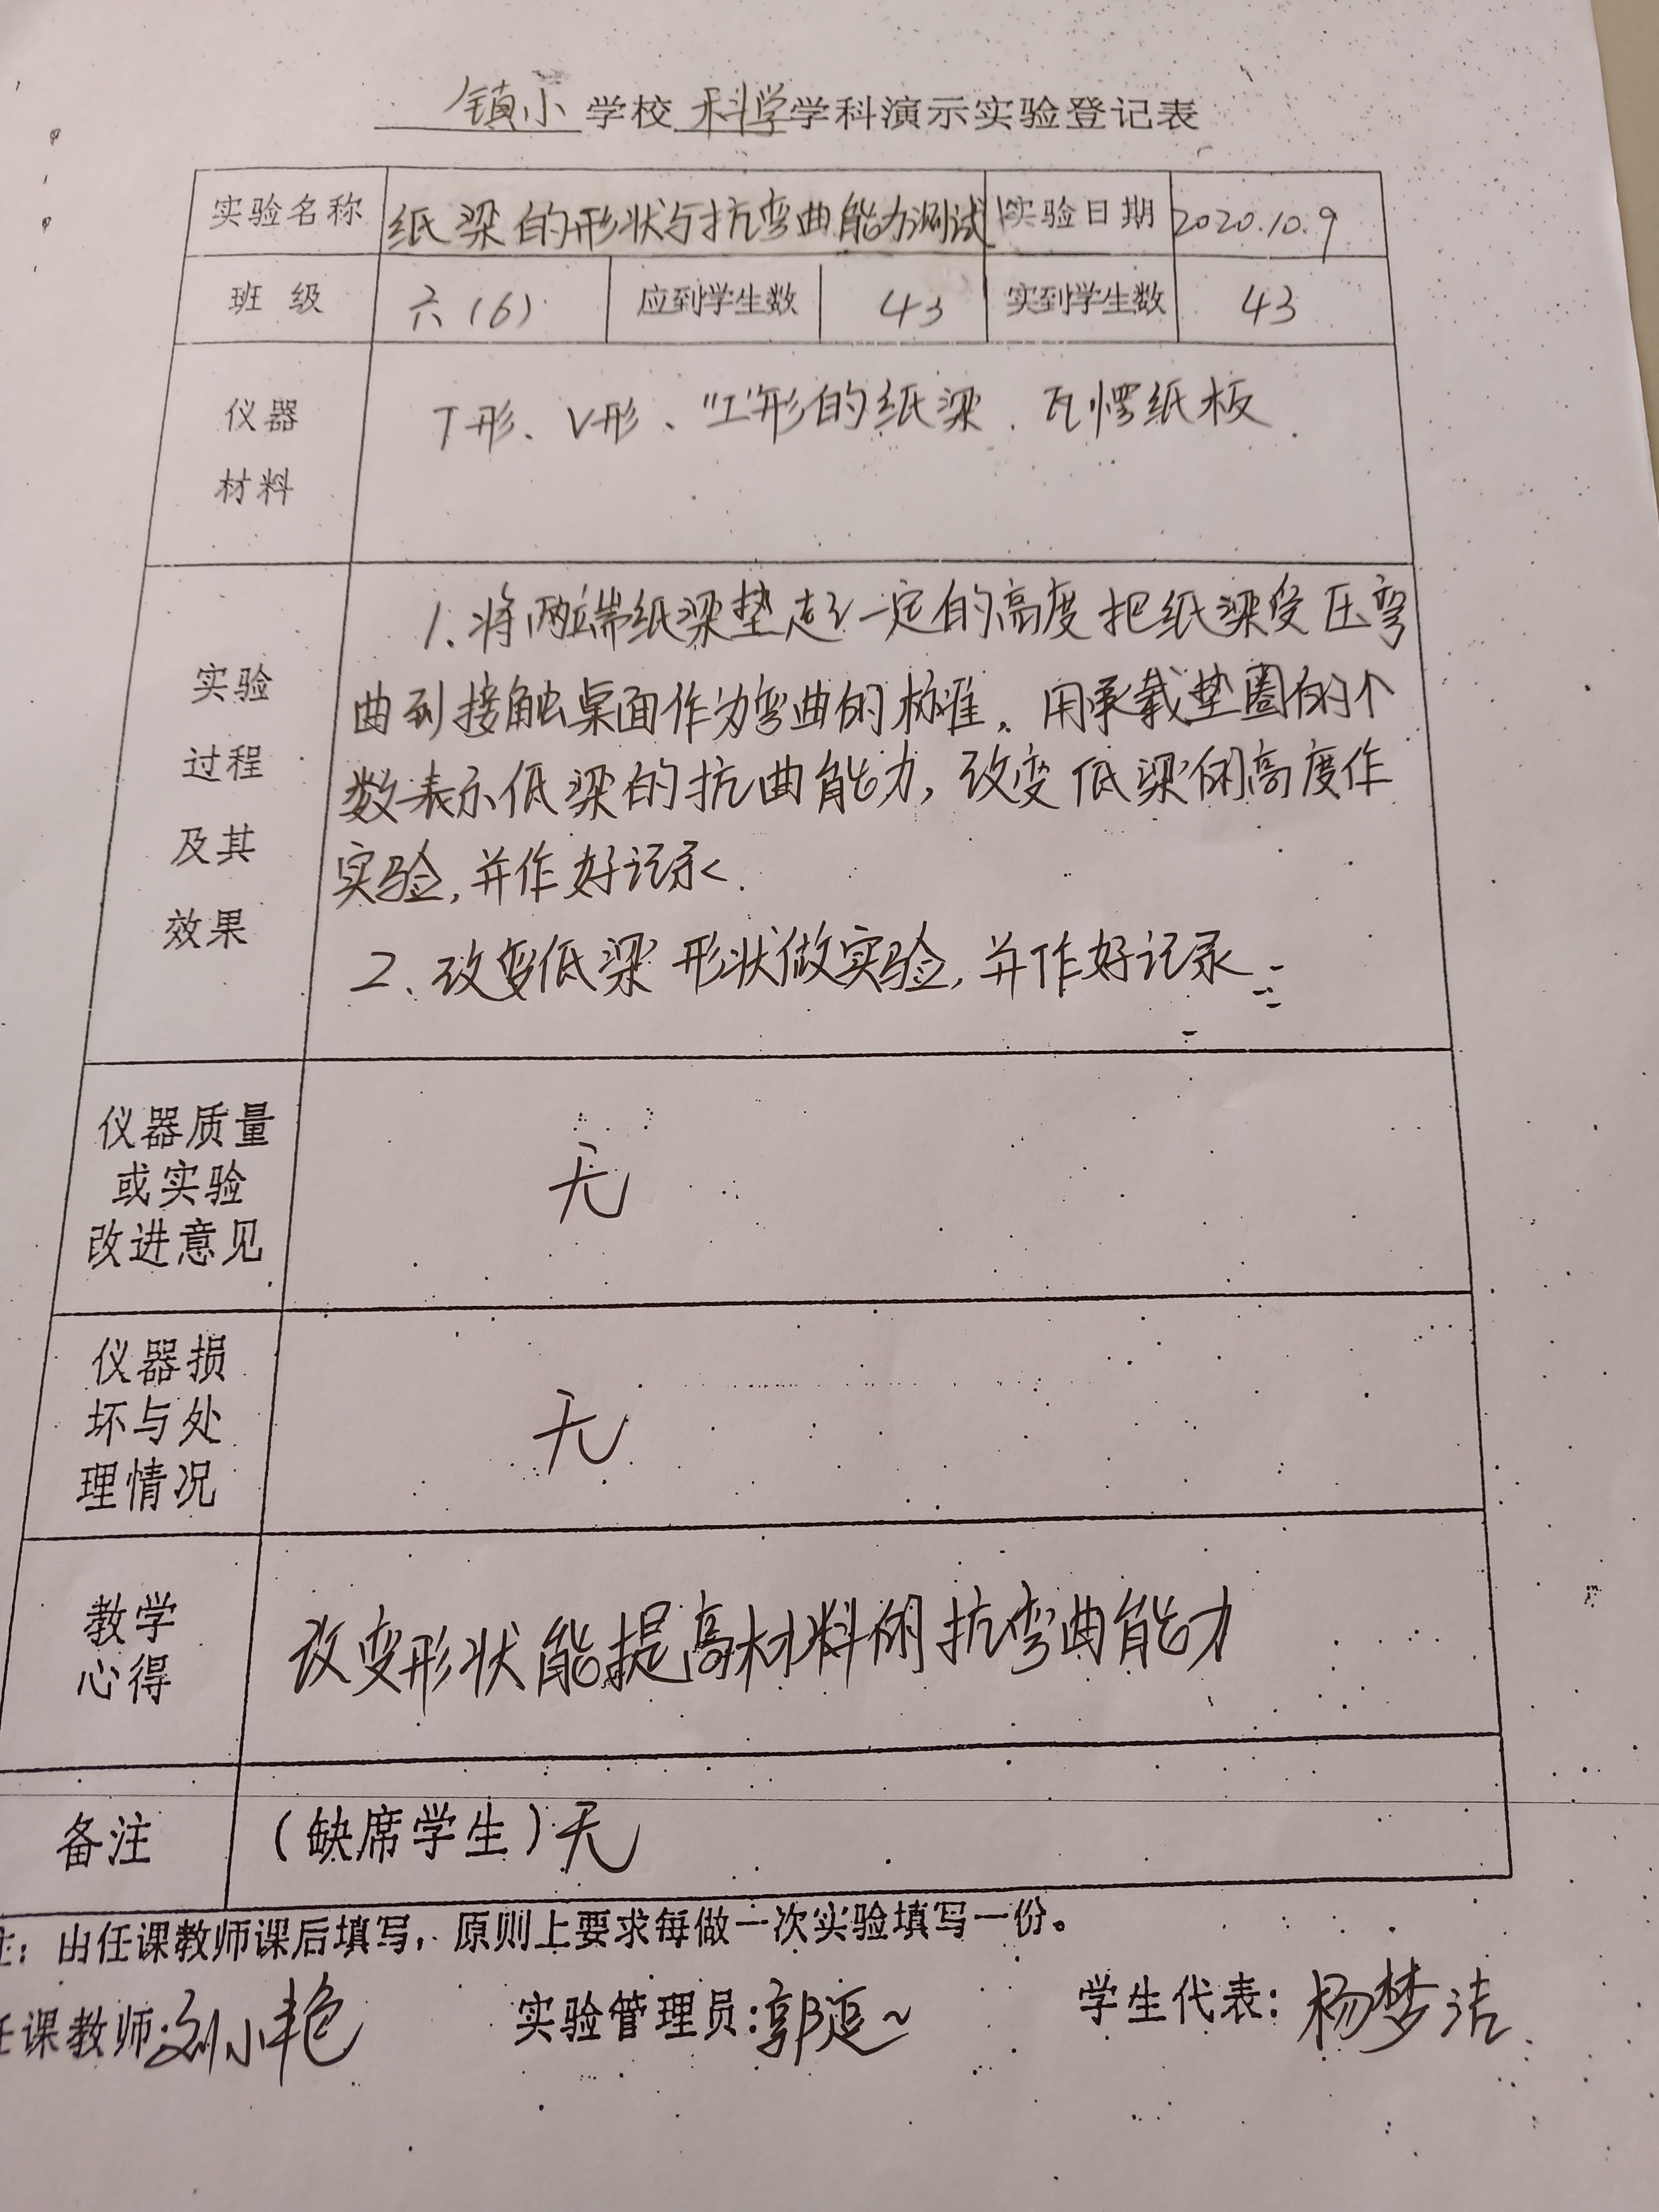 镇小学校科学学科演示实验登记表
实验名称 纸梁的形状与抗弯曲能力测试 实验日期 2020.10.9
班级 六(6) 应到学生数 43 实到学生数 43
仪器 T形、V形、"工"形的纸梁.瓦楞纸板.
材料
1.将两端纸梁垫起一定的高度把纸梁受压弯
实验
曲到接触桌面作为弯曲的标准。用承载垫圈的个
过程
数表示低梁的抗曲能力,改变低梁的高度作
及其
实验,并作好记录.
效果
2、改变低梁形状做实验,并作好记录
仪器质量
或实验 无
改进意见
仪器损
坏与处 无
理情况
教学
心得 改变形状能提高材料的抗弯曲能力
备注 (缺席学生)无
注:由任课教师课后填写,原则上要求每做一次实验填写一份。
任课教师:刘小艳 实验管理员:郭 学生代表:杨梦洁